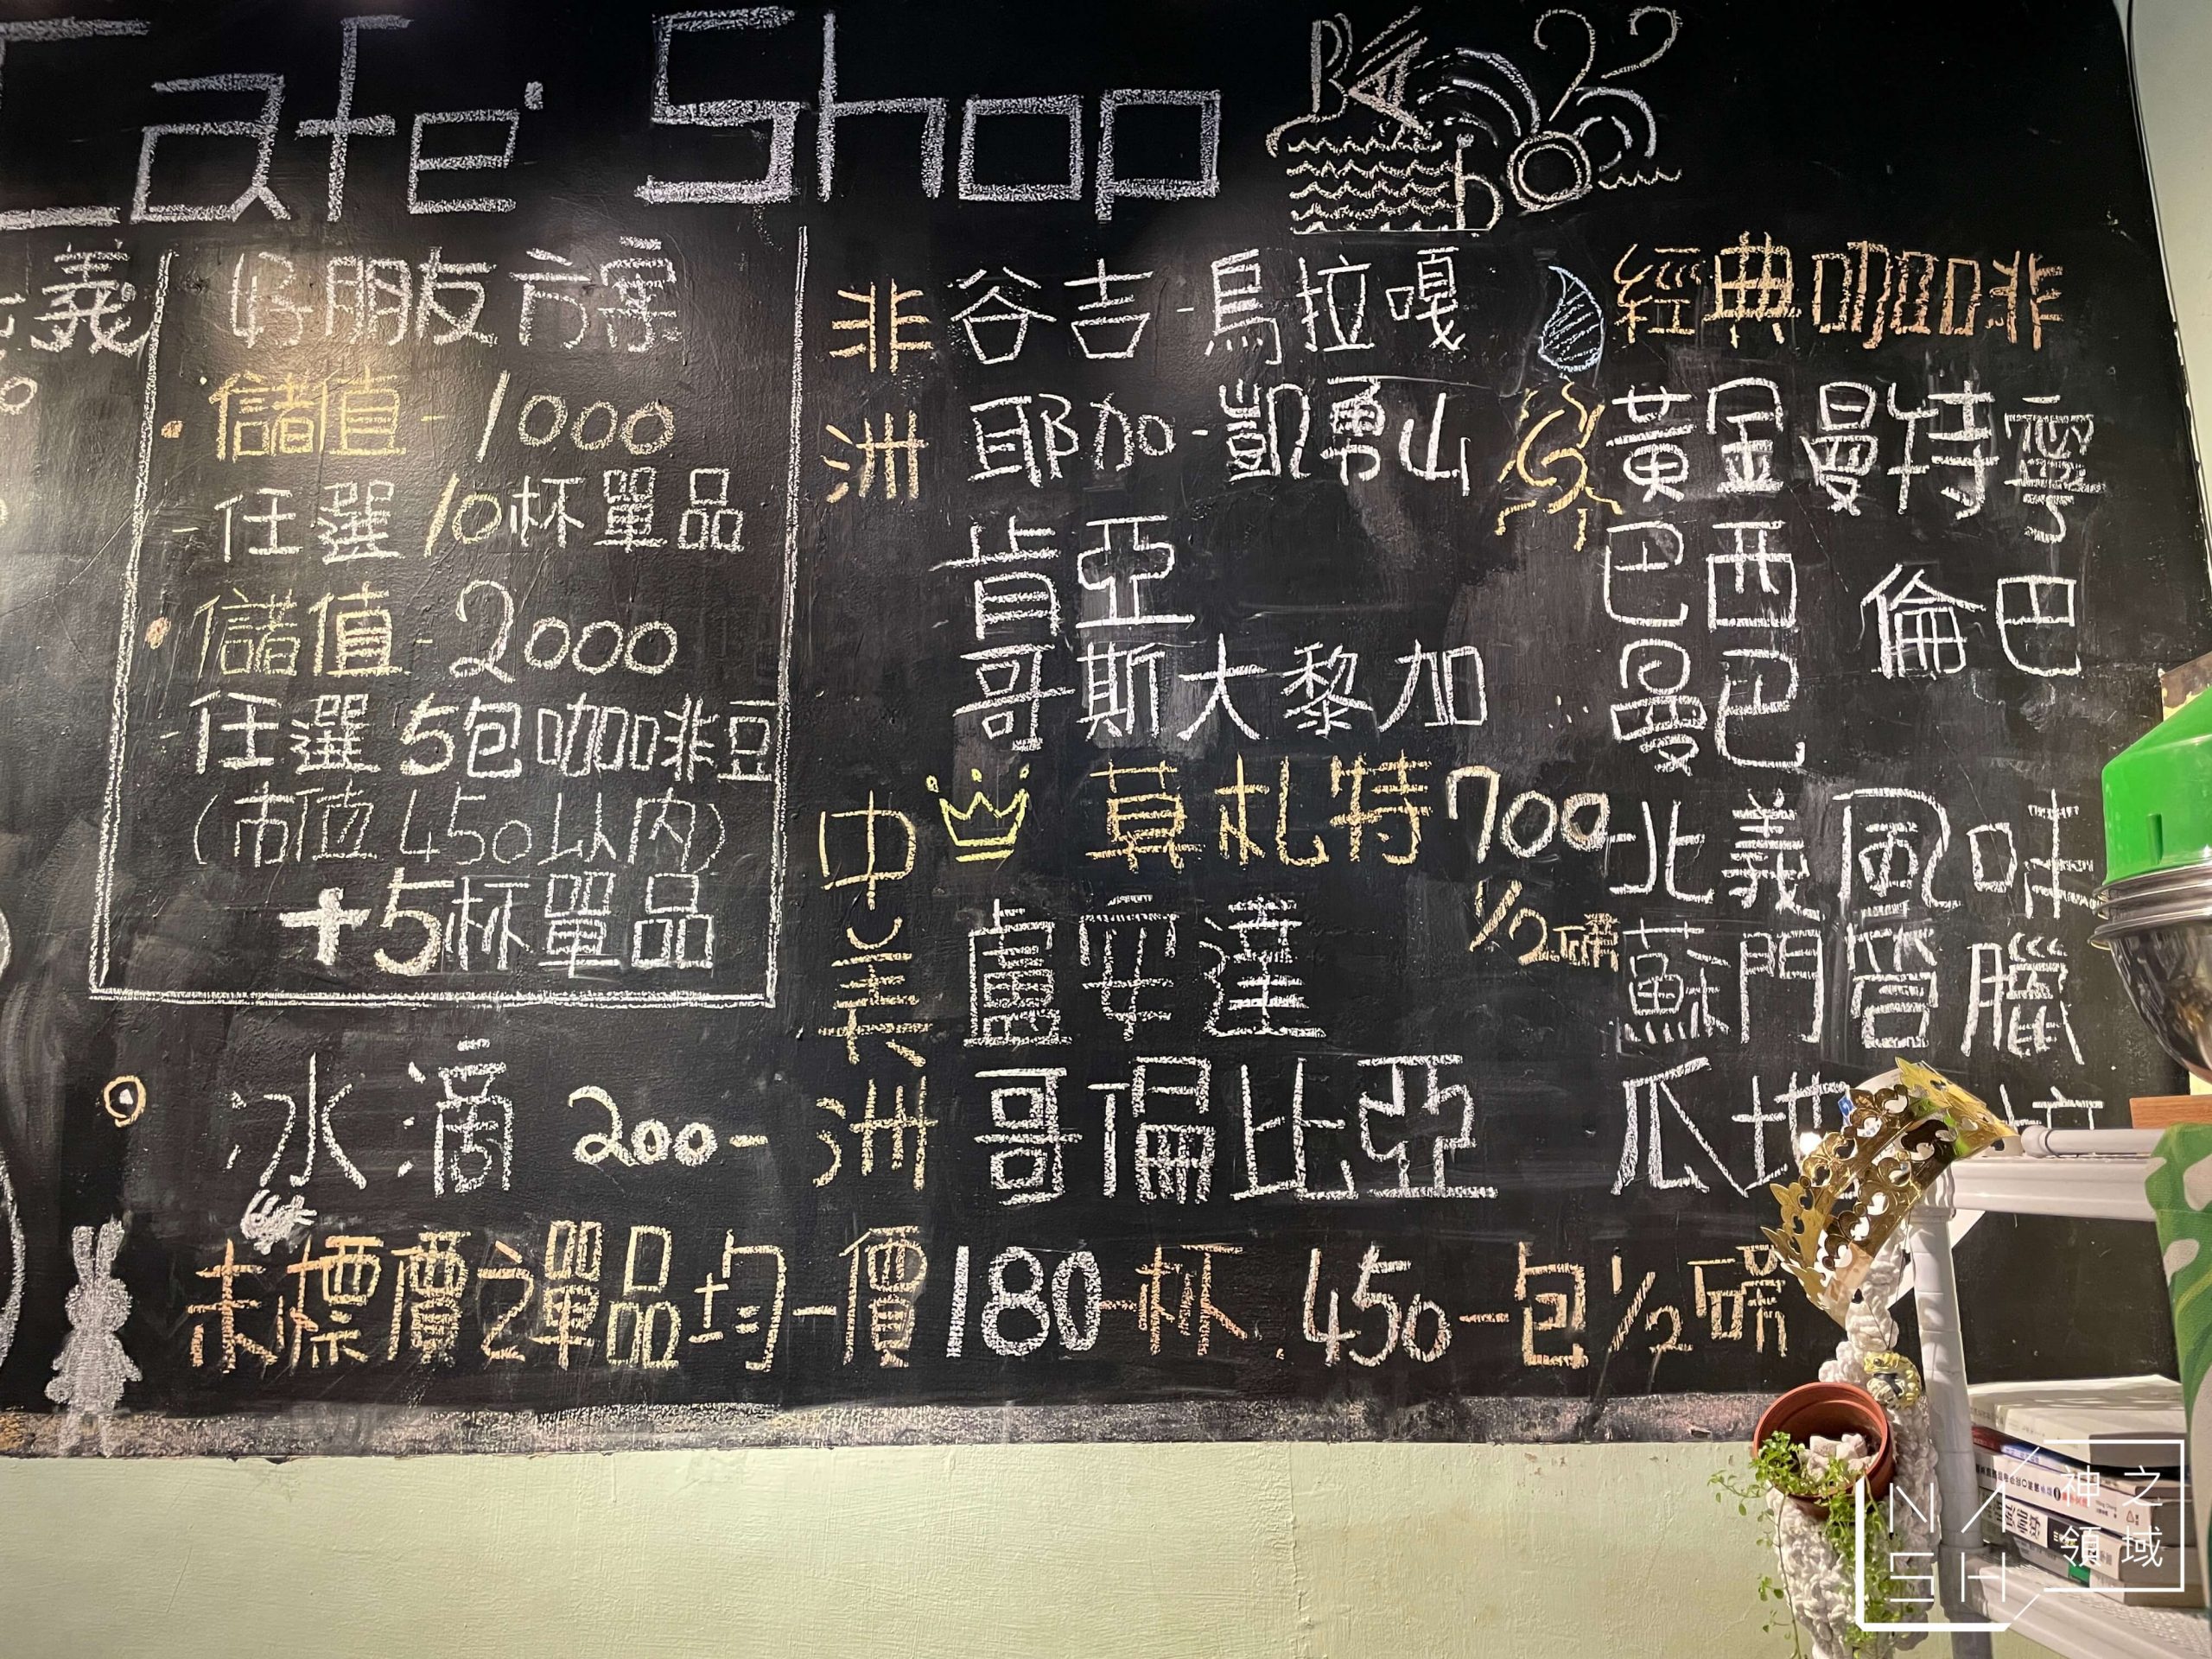 Cafe Shop
義
好朋友方案
儲值-1000
-任選10杯單品
儲值-2000
-任選5包咖啡豆
(市值450以內)
+5杯單品
冰滴 200-
非洲
谷吉-烏拉嘎
耶加-凱勇山
肯亞
哥斯大黎加
中美洲
莫札特700
1/2磅
盧安達
哥倫比亞
經典咖啡
黃金曼特寧
巴西
倫巴
曼巴
北義風味
蘇門答臘
瓜地
未標價之單品均一價180一杯.450一包1/2磅
NASH
神之領域